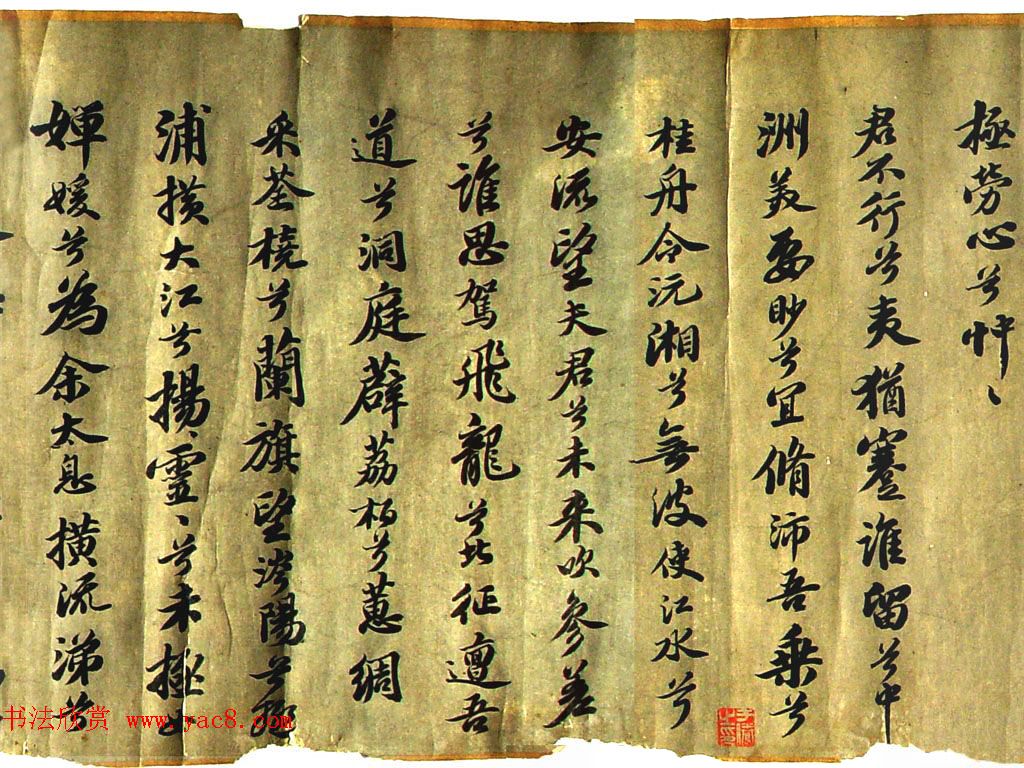 極勞心兮忡〻
君不行兮夷猶蹇誰留兮中
洲美要眇兮宜脩沛吾乘兮
桂舟令沅湘兮無波使江水兮
安流望夫君兮未来吹參差
兮誰思駕飛龍兮北征邅吾
道兮洞庭薜荔栢兮蕙綢
采荃橈兮蘭旗望涔陽兮極
浦橫大江兮揚靈〻兮未極女
嬋媛兮為余太息橫流涕兮
书法欣赏 www.yac8.com